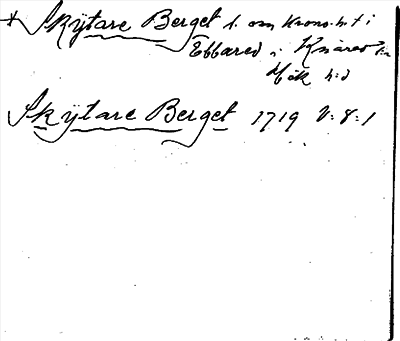 * Skÿtare Berget h. om Krono.h.t i
Ebbared i Knäred sn
Hök h:d
Skÿtare Berget 1719 V:8:1